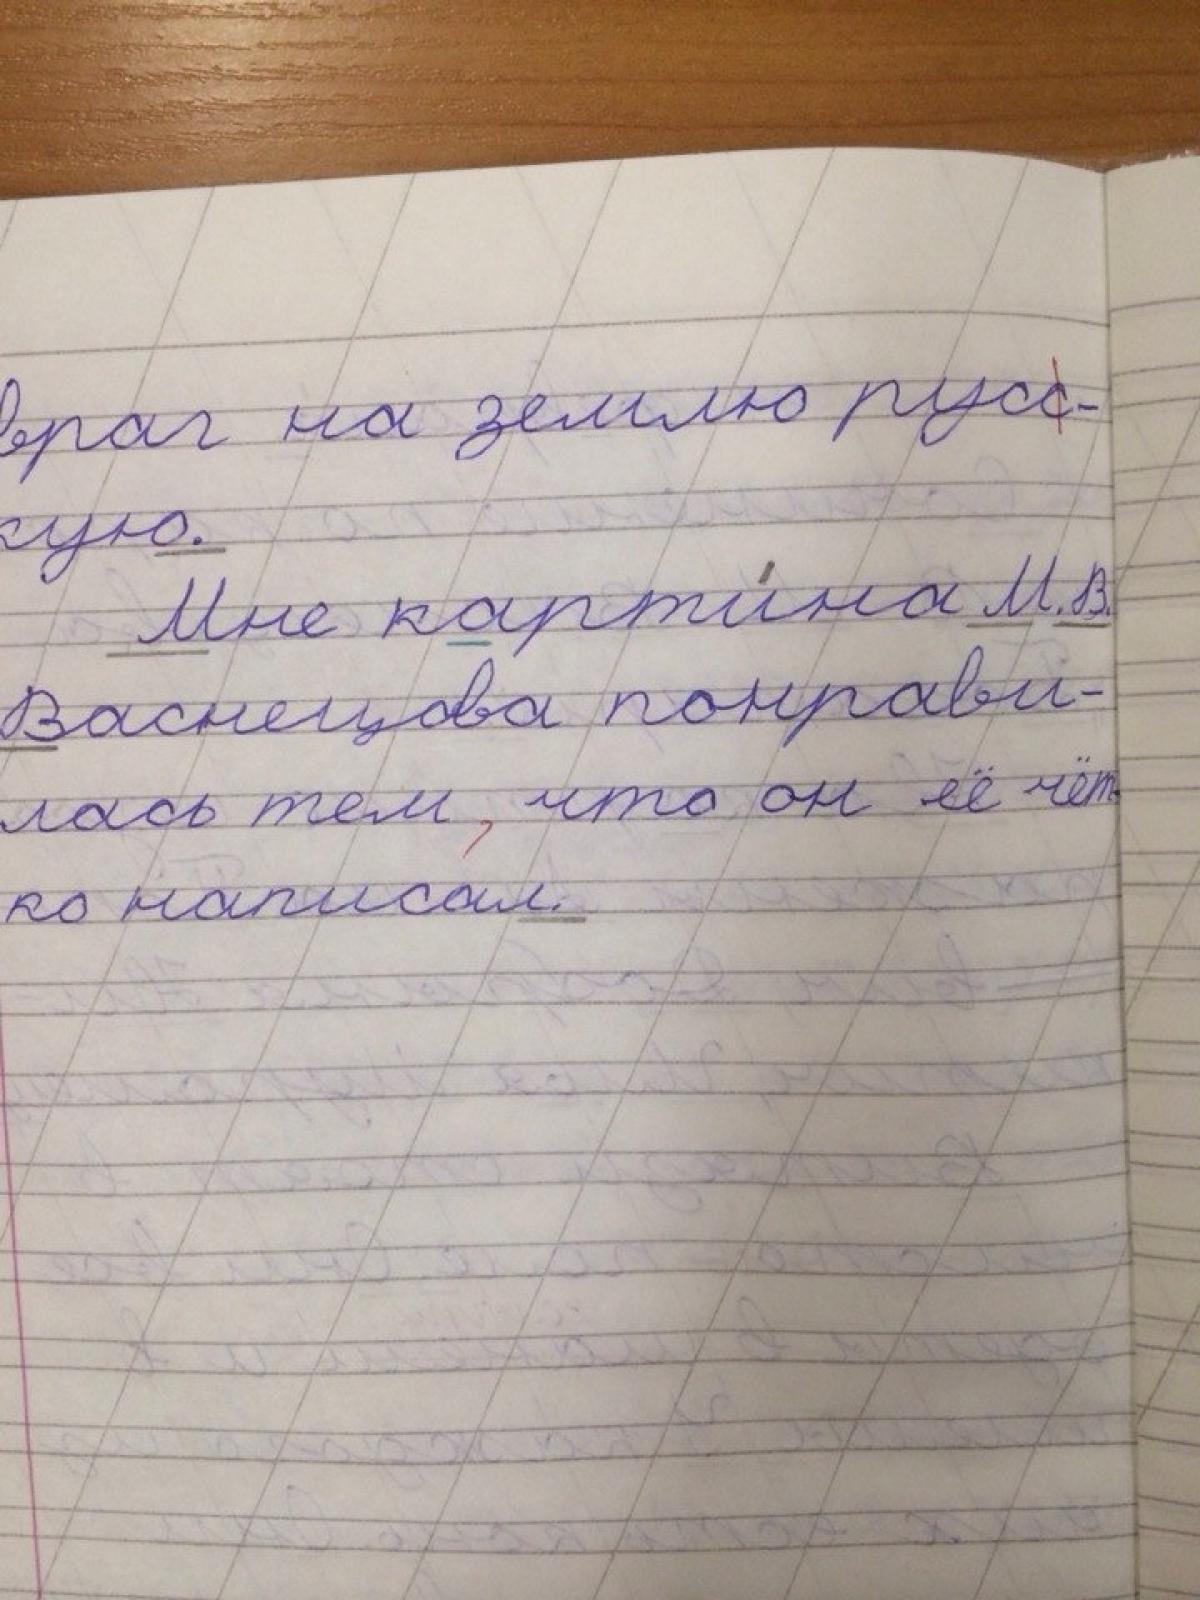 враг на землю русс-
кую.
Мне картина М.В.
Васнецова понрави-
лась тем, что он её чёт
ко написал.